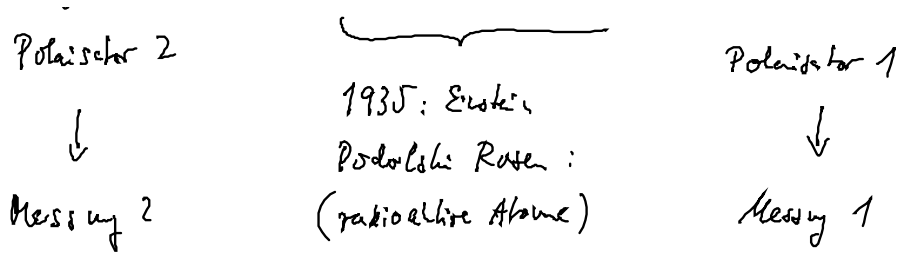 Polarisator 2
↓
Messung 2
1935: Einstein
Podolski Rosen:
(radioaktive Atome)
Polarisator 1
↓
Messung 1